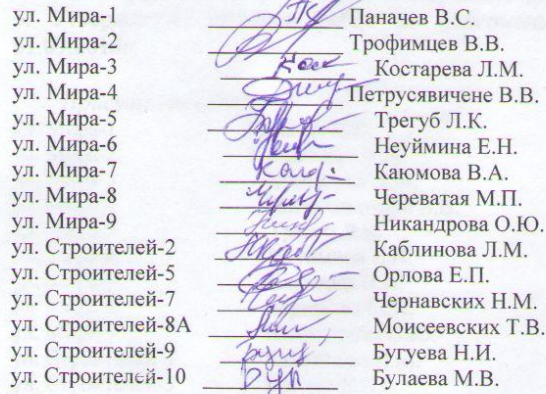 ул. Мира-1 Паначев В.С.
ул. Мира-2 Трофимцев В.В.
ул. Мира-3 Костарева Л.М.
ул. Мира-4 Петрусявичене В.В.
ул. Мира-5 Трегуб Л.К.
ул. Мира-6 Неуймина Е.Н.
ул. Мира-7 Каюмова В.А.
ул. Мира-8 Череватая М.П.
ул. Мира-9 Никандрова О.Ю.
ул. Строителей-2 Каблинова Л.М.
ул. Строителей-5 Орлова Е.П.
ул. Строителей-7 Чернавских Н.М.
ул. Строителей-8А Моисеевских Т.В.
ул. Строителей-9 Бугуева Н.И.
ул. Строителей-10 Булаева М.В.